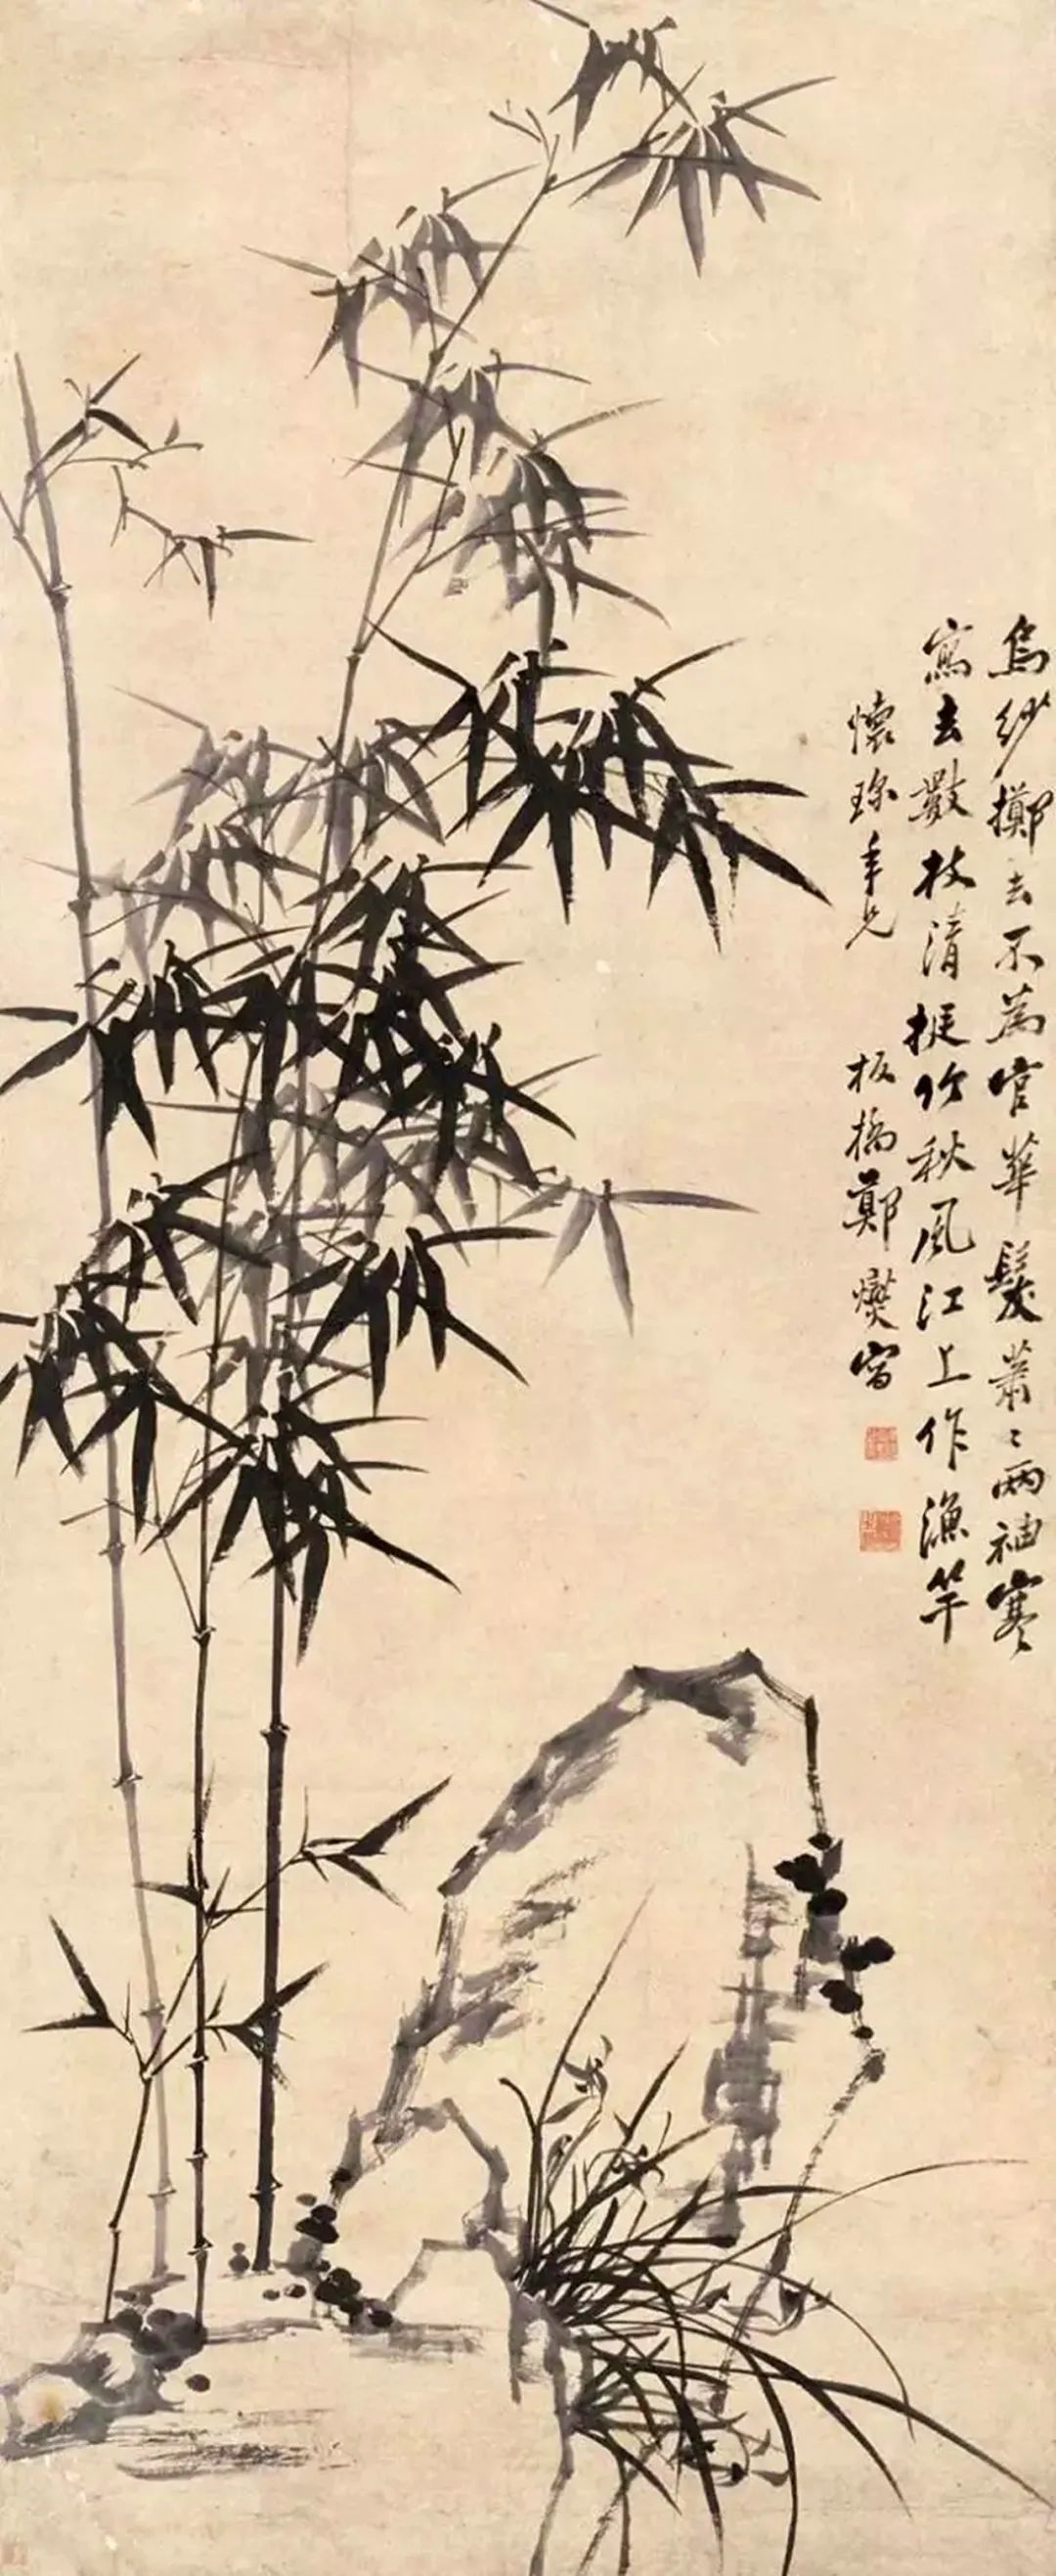 烏紗擲去不為官華髮蕭〻兩袖寒
寫去數枝清挺竹秋風江上作漁竿
懷年兄
板橋鄭燮